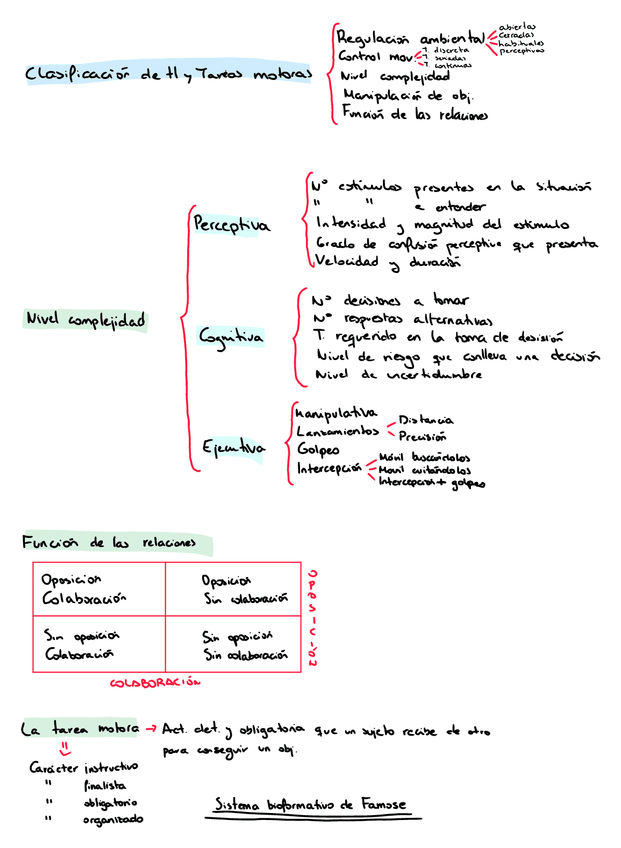 Clasificación de H y Tareas motoras
Regulación ambiental
abiertas
Cerradas
habituales
perceptivas
Control mov.
T. discreta
T. seriadas
T. continuas
Nivel complejidad
Manipulación de obj.
Función de las relaciones
Nivel complejidad
Perceptiva
Nº estímulos presentes en la situación
" " a entender
Intensidad y magnitud del estímulo
Grado de confusión perceptiva que presenta
Velocidad y duración
Cognitiva
Nº decisiones a tomar
Nº respuestas alternativas
T. requerido en la toma de desisión
Nivel de riesgo que conlleva una decisión
Nivel de incertidumbre
Ejecutiva
Manipulativa
Lanzamientos
Distancia
Precisión
Golpeo
Intercepción
Móvil buscándolos
Movil evitándolos
Intercepción + golpeo
Función de las relaciones
Oposicion
Colaboración
Oposicion
Sin colaboración
Sin oposicion
Colaboración
Sin oposicion
Sin colaboración
OPOSICIÓN
COLABORACIÓN
La tarea motora → Act. det. y obligatoria que un sujeto recibe de otro
para conseguir un obj.
Carácter instructivo
" finalista
" obligatorio
" organizado
Sistema bioformativo de Famose